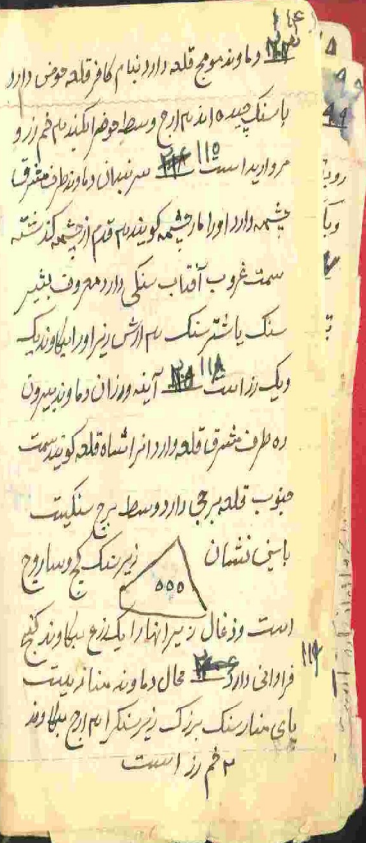 دماوند موج قلعه دارد بنام کافر قلعه حوض دارد
با سنک چیده اند ۳ ارج وسط حوض را بکنید ۳ خم زر و
مروارید است ۱۱۵ سر بندان دماوند طرف مشرق
چشمه دارد او را مار چشمه کویند ۳ قدم از چشمه کذشته
سمت غروب آفتاب سنکی دارد معروف بشیر
سنک یا شتر سنک ۳ ارش زیر او را بکاوند یک
دیک زر است ۱۱۸ آینه ورزان دماوند بیرون
ده طرف مشرق قلعه دارد انرا شاه قلعه کویند سمت
جنوب قلعه برجی دارد وسط برج سنکیست
باین نشان زیر سنک کج و ساروج
است و ذغال زیر انها را یک زرع بکاوند کنج
۱۱۹ فراوانی دارد محال دماوند مناریست
پای منار سنک بزرک زیر سنک را ۳ ارج بکاوند
۲ خم زر است